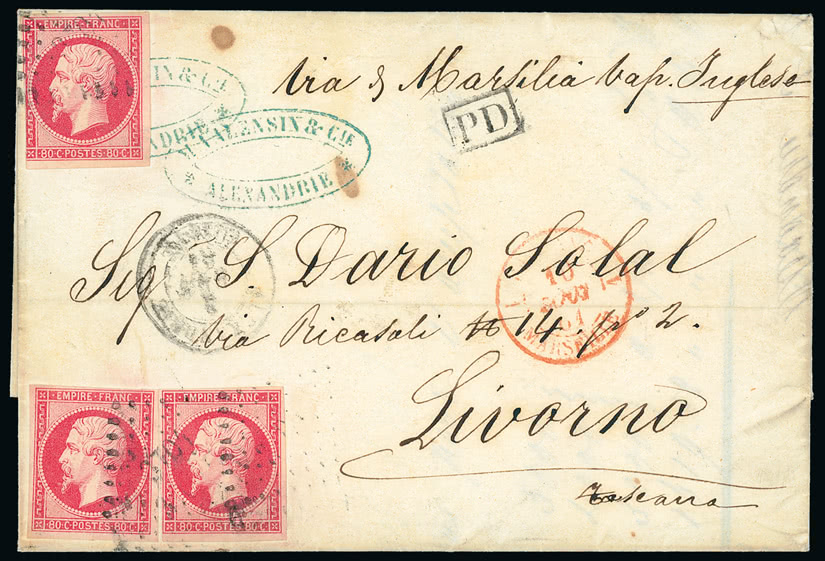 EMPIRE FRANC
80·C·POSTES·80·C
VALENSIN & CIE
ALEXANDRIE
via di Marsilia vap. Inglese
PD
Sigr S. Dario Solal
Via Ricasoli № 14 po 2.
Livorno
Toscana
10
AOUT
61
MARSEILLE
EMPIRE FRANC
80·C·POSTES·80·C
EMPIRE FRANC
80·C·POSTES·80·C